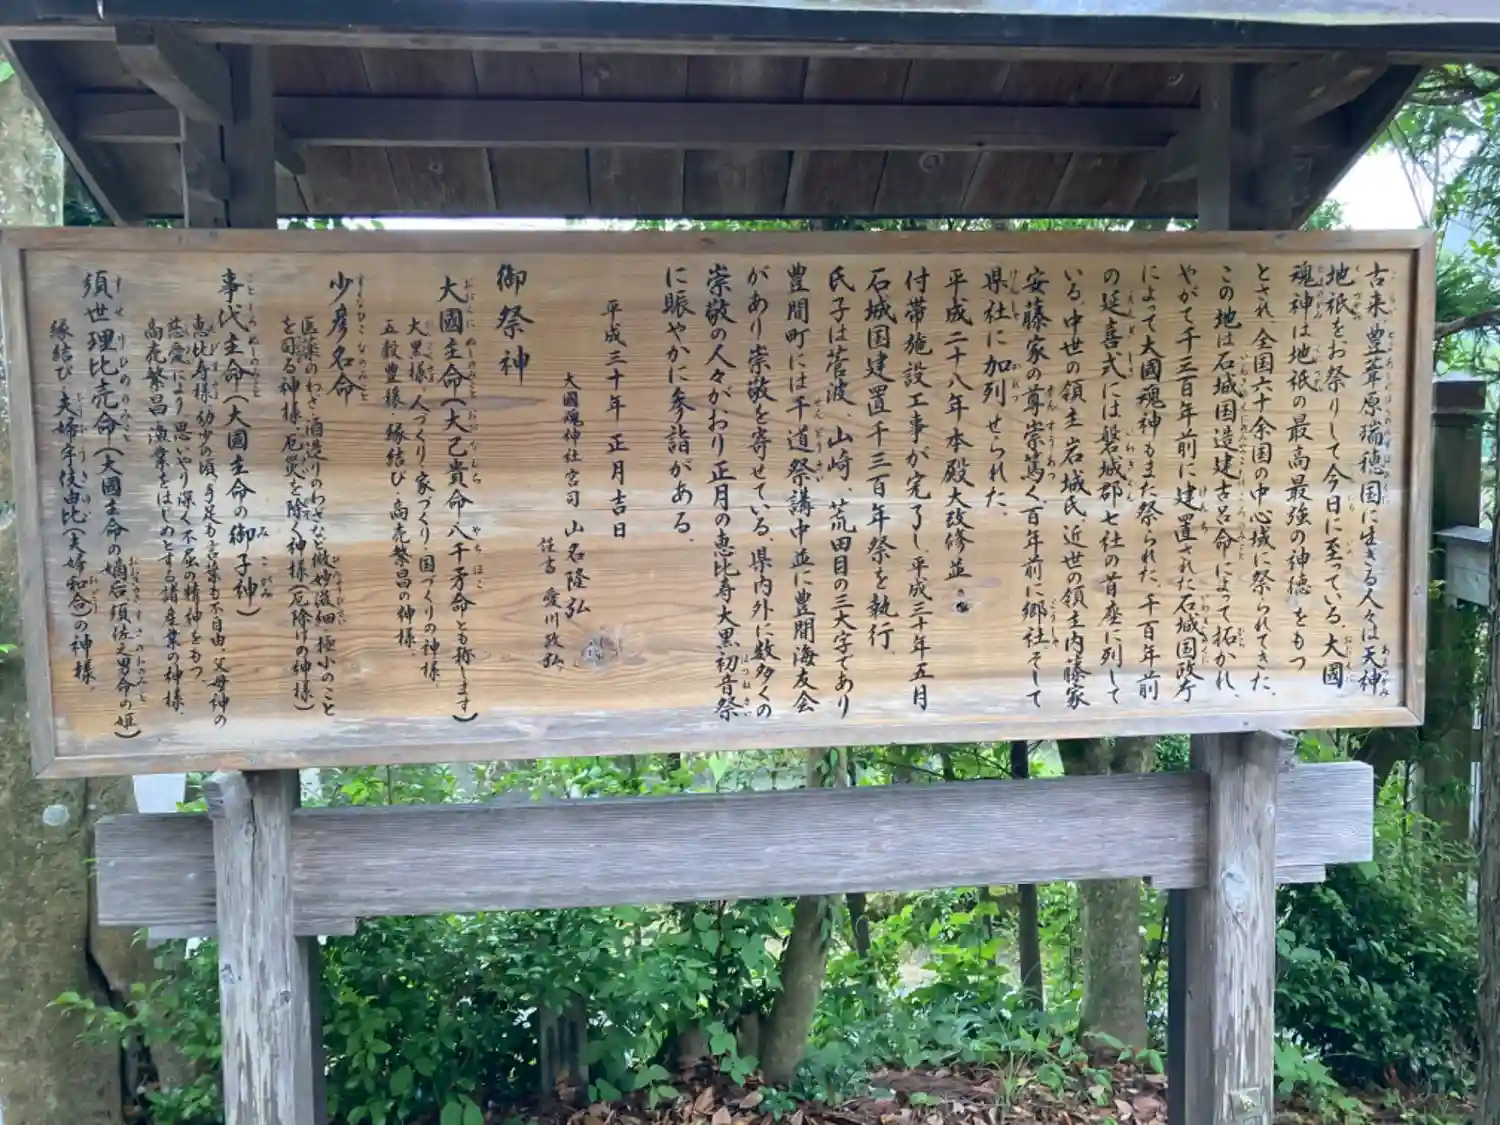 古来、豊葦原瑞穂国に生きる人々は天神
地祇をお祭りして今日に至っている。大國
魂神は地祇の最高最強の神徳をもつ
とされ、全国六十余国の中心域に祭られてきた。
この地は石城国造建許呂命によって拓かれ、
やがて千三百年前に建置された石城国政庁
によって大國魂神もまた祭られた。千百年前
の延喜式には磐城郡七社の首座に列して
いる。中世の領主岩城氏、近世の領主内藤家
安藤家の尊崇篤く、百年前に郷社そして
県社に加列せられた。
平成二十八年本殿大改修並
付帯施設工事が完了し、平成三十年五月
石城国建置千三百年祭を執行
氏子は菅波、山崎、荒田目の三大字であり
豊間町には千道祭講中並に豊間海友会
があり崇敬を寄せている。県内外に数多くの
崇敬の人々がおり正月の恵比寿大黒初音祭
に賑やかに参詣がある。
平成三十年 正月吉日
大國魂神社宮司 山名隆弘
謹書 愛川
御祭神
大國主命(大己貴命八千矛命とも称します)
大黒様、人づくり、家づくり、国づくりの神様。
五穀豊穣・縁結び・商売繁昌の神様。
少彦名命
医薬のわざ・酒造りのわざなど微妙滋細・極小のこと
を司る神様。厄災を除く神様(厄除けの神様)
事代主命(大國主命の御子神)
恵比寿様。幼少の頃、手足も言葉も不自由、父母神の
慈愛により思いやり深く不屈の精神をもつ。
商売繁昌、漁業をはじめとする諸産業の神様。
須世理比売命(大國主命の嫡后須佐之男命の姫)
縁結び・夫婦宇伎由比(夫婦和合)の神様。